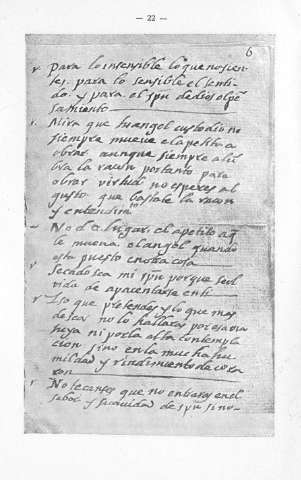 — 22 —
6
para lo insensible lo que no sien-
tes. para lo sensible el senti-
do y para el spu de dios el pē
samiento
Mira que tu angel custodio no
siempre mueve el apetito a
obrar aunque siempre alū
bra la raçon por tanto para
obrar virtud no esperes al
gusto que bastate la raçon
y entendimᵒ
No da lugar el apetito a q̄
le mueua el angel quando
esta puesto en otra cosa
secado sea mi spu porque se ol
vida de apacentarse en ti
Eso que pretendes y lo que mas
deseas no lo hallaras por esa via
tuya ni por la alta contempla
cion sino en la mucha hu-
mildad y rendimiento de cora
çon
No te canses que no entraras en el
sabor y suauidad de spu si no